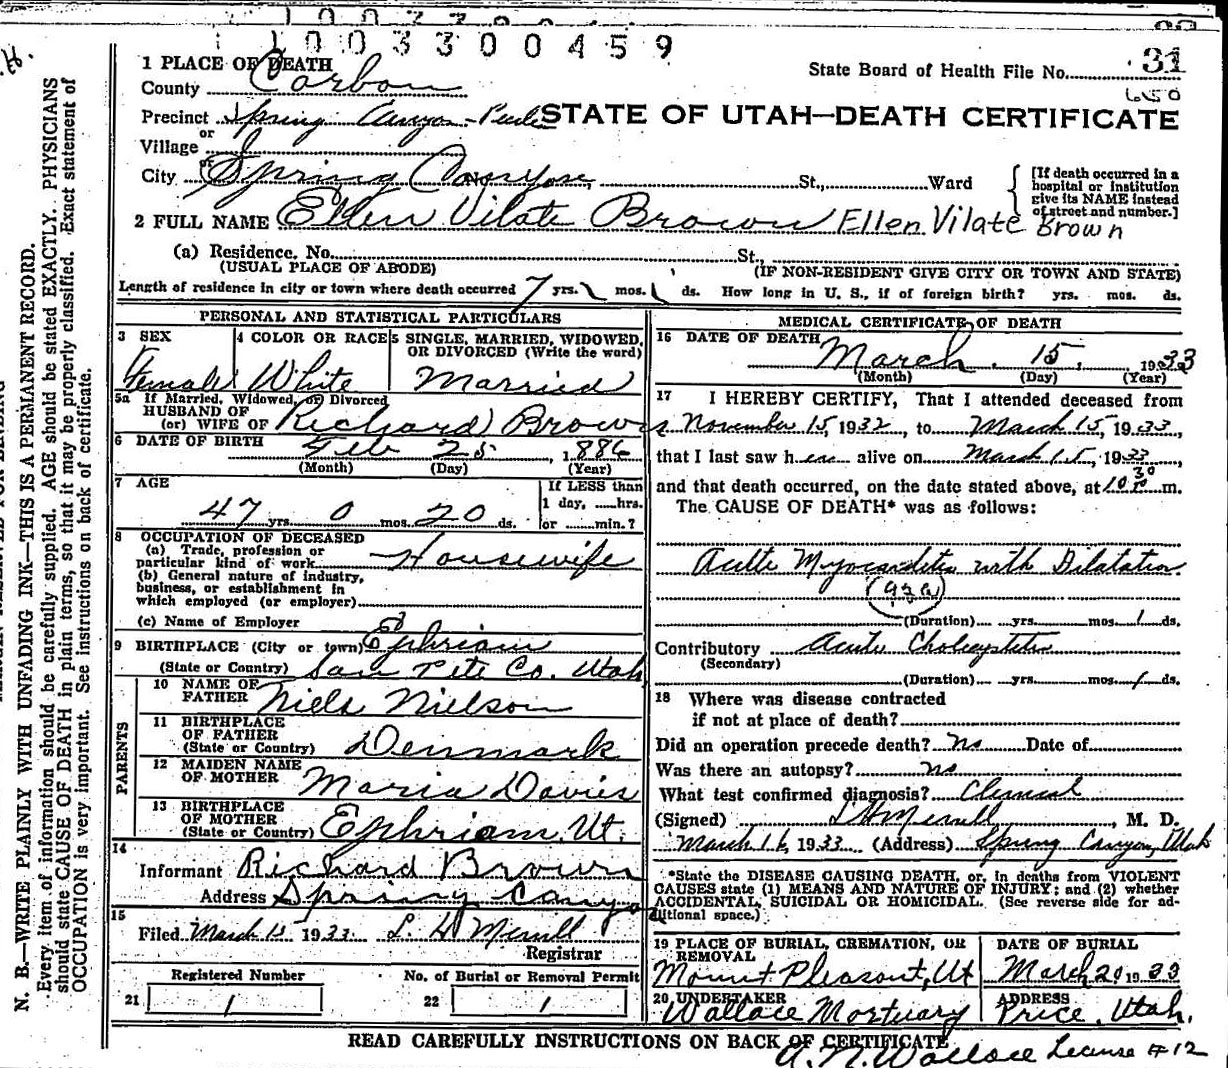 1003300459
1 PLACE OF DEATH
County Carbon
State Board of Health File No. 31
650
Precinct Spring Canyon
STATE OF UTAH—DEATH CERTIFICATE
or
Village
or
City Spring Canyon, St., Ward
[If death occurred in a hospital or institution give its NAME instead of street and number.]
2 FULL NAME Ellen Vilate Brown Ellen Vilate Brown
(a) Residence. No. St.,
(USUAL PLACE OF ABODE) (IF NON-RESIDENT GIVE CITY OR TOWN AND STATE)
Length of residence in city or town where death occurred 7 yrs. mos. ds. How long in U. S., if of foreign birth? yrs. mos. ds.
PERSONAL AND STATISTICAL PARTICULARS
3 SEX
Female
4 COLOR OR RACE
White
5 SINGLE, MARRIED, WIDOWED,
OR DIVORCED (Write the word)
Married
5a If Married, Widowed, or Divorced
HUSBAND OF
(or) WIFE OF Richard Brown
6 DATE OF BIRTH Feb 25, 1886
(Month) (Day) (Year)
7 AGE
47 yrs. 0 mos. 20 ds.
If LESS than
1 day, hrs.
or min.?
8 OCCUPATION OF DECEASED
(a) Trade, profession or
particular kind of work Housewife
(b) General nature of industry,
business, or establishment in
which employed (or employer)
(c) Name of Employer
9 BIRTHPLACE (City or town) Ephriam
(State or Country) San Pete Co. Utah
PARENTS
10 NAME OF
FATHER Niels Nielson
11 BIRTHPLACE
OF FATHER
(State or Country) Denmark
12 MAIDEN NAME
OF MOTHER Maria Davies
13 BIRTHPLACE
OF MOTHER
(State or Country) Ephriam, Ut.
14
Informant Richard Brown
Address Spring Canyon
15
Filed March 15 1933 L. H Merrill
Registrar
Registered Number
21 1
No. of Burial or Removal Permit
22 1
MEDICAL CERTIFICATE OF DEATH
16 DATE OF DEATH March 15, 1933
(Month) (Day) (Year)
17 I HEREBY CERTIFY, That I attended deceased from
November 15, 1932, to March 15, 1933,
that I last saw her alive on March 15, 1933,
and that death occurred, on the date stated above, at 10 30 m.
The CAUSE OF DEATH* was as follows:
Acute Myocarditis with Dilatation
(Duration) yrs. mos. 1 ds.
Contributory Acute Cholecystitis
(Secondary)
(Duration) yrs. mos. 1 ds.
18 Where was disease contracted
if not at place of death?
Did an operation precede death? no Date of
Was there an autopsy? no
What test confirmed diagnosis? Clinical
(Signed) L H Merrill, M. D.
March 16, 1933 (Address) Spring Canyon, Utah
*State the DISEASE CAUSING DEATH, or, in deaths from VIOLENT
CAUSES state (1) MEANS AND NATURE OF INJURY; and (2) whether
ACCIDENTAL, SUICIDAL OR HOMICIDAL. (See reverse side for ad-
ditional space.)
19 PLACE OF BURIAL, CREMATION, OR
REMOVAL
Mount Pleasant, Ut
DATE OF BURIAL
March 20 1933
20 UNDERTAKER
Wallace Mortuary
ADDRESS
Price, Utah.
READ CAREFULLY INSTRUCTIONS ON BACK OF CERTIFICATE
A. N. Wallace License #12
N. B.—WRITE PLAINLY WITH UNFADING INK—THIS IS A PERMANENT RECORD.
Every item of information should be carefully supplied. AGE should be stated EXACTLY. PHYSICIANS
should state CAUSE OF DEATH in plain terms, so that it may be properly classified. Exact statement of
OCCUPATION is very important. See instructions on back of certificate.